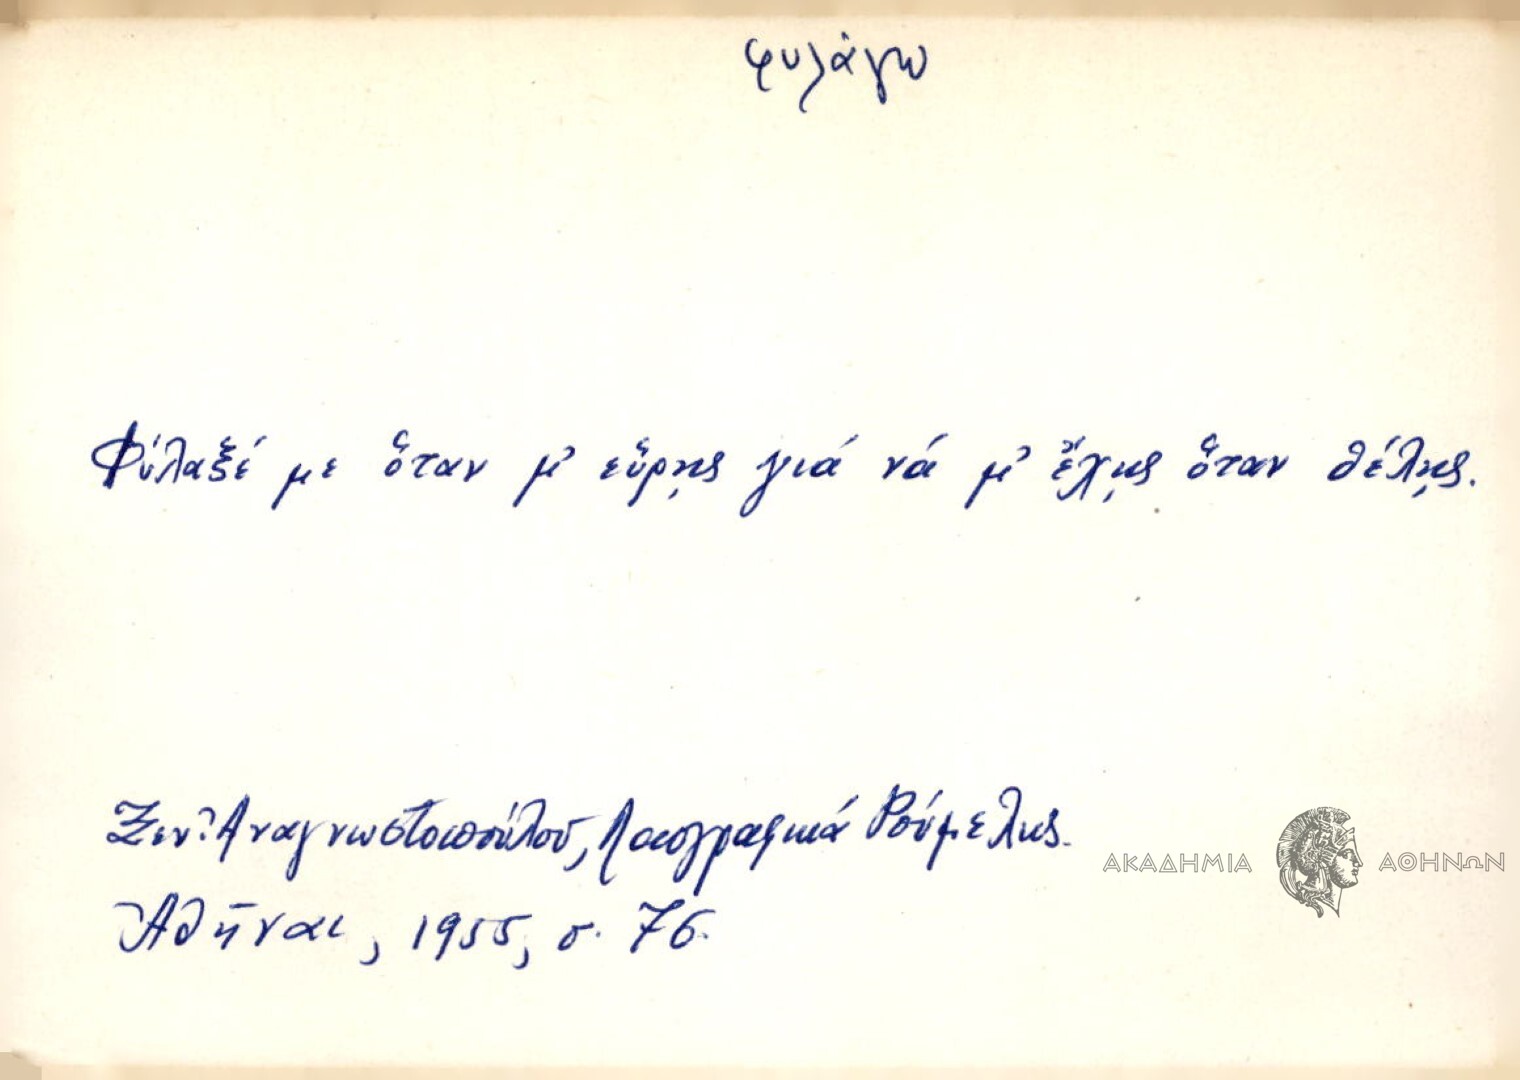 φυλάγω
Φύλαξέ με ὅταν μ' εὕρῃς γιά νά μ' ἔχῃς ὅταν θέλῃς.
Ξεν. Ἀναγνωστοπούλου, Λαογραφικά Ρούμελης.
Ἀθῆναι, 1955, σ. 76.
ΑΚΑΔΗΜΙΑ ΑΘΗΝΩΝ